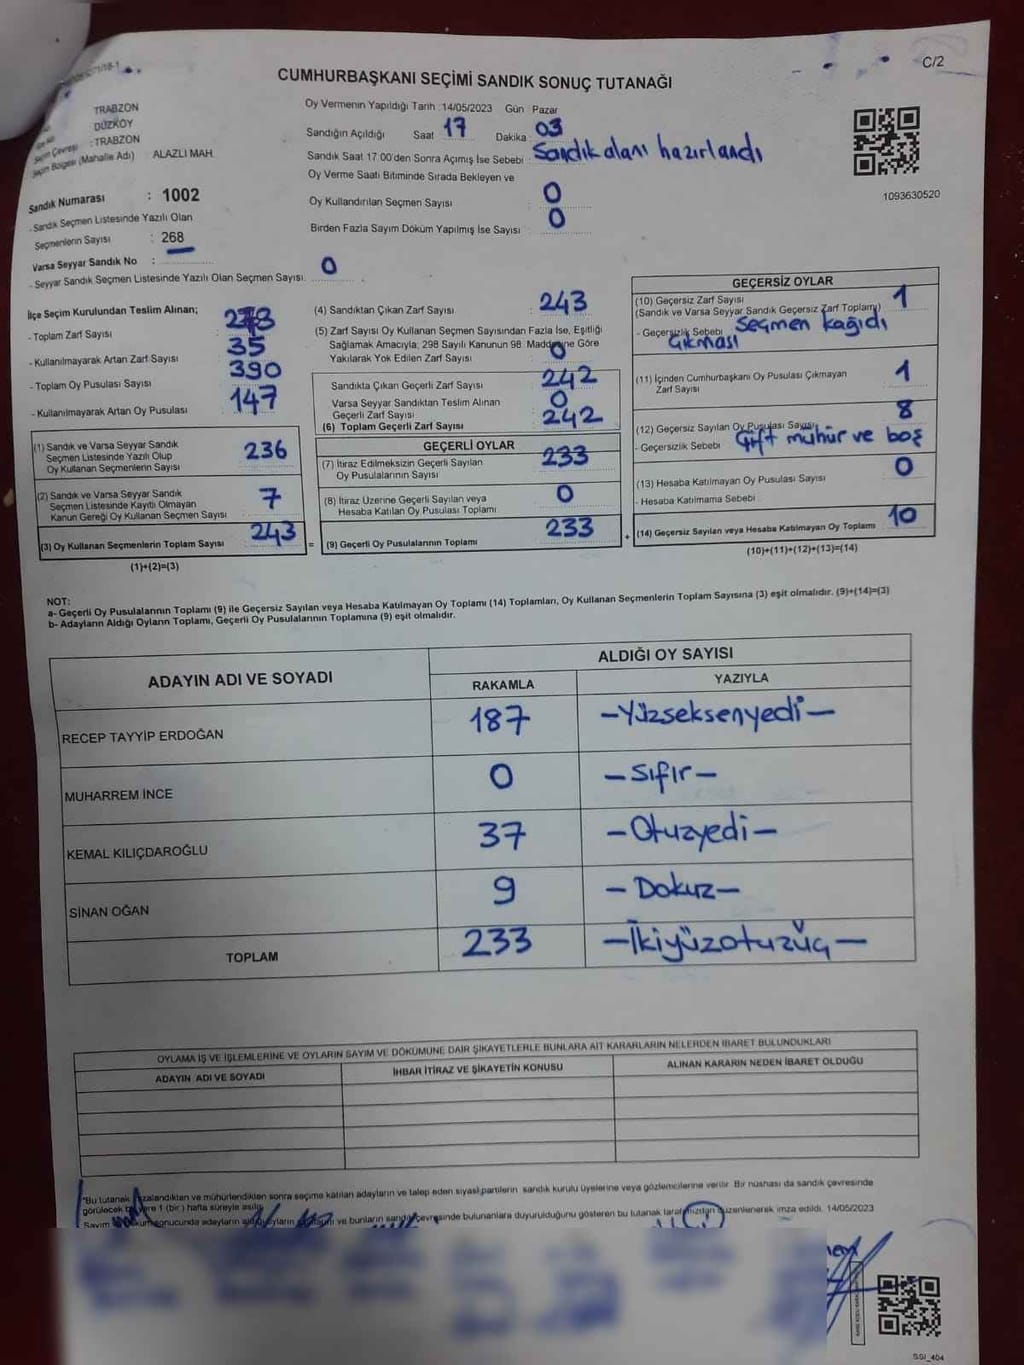 C/2
CUMHURBAŞKANI SEÇİMİ SANDIK SONUÇ TUTANAĞI
TRABZON
DÜZKÖY
Seçim Çevresi : TRABZON
Seçim Bölgesi (Mahalle Adı) ALAZLI MAH.
Sandık Numarası : 1002
- Sandık Seçmen Listesinde Yazılı Olan
Seçmenlerin Sayısı : 268
Varsa Seyyar Sandık No :
- Seyyar Sandık Seçmen Listesinde Yazılı Olan Seçmen Sayısı: 0
Oy Vermenin Yapıldığı Tarih :14/05/2023 Gün : Pazar
Sandığın Açıldığı Saat 17 Dakika : 03
Sandık Saat 17:00'den Sonra Açılmış İse Sebebi : Sandık alanı hazırlandı
Oy Verme Saati Bitiminde Sırada Bekleyen ve
Oy Kullandırılan Seçmen Sayısı : 0
Birden Fazla Sayım Döküm Yapılmış İse Sayısı : 0
1093630520
İlçe Seçim Kurulundan Teslim Alınan;
- Toplam Zarf Sayısı : 278
- Kullanılmayarak Artan Zarf Sayısı : 35
- Toplam Oy Pusulası Sayısı : 390
- Kullanılmayarak Artan Oy Pusulası : 147
(1) Sandık ve Varsa Seyyar Sandık
Seçmen Listesinde Yazılı Olup
Oy Kullanan Seçmenlerin Sayısı 236
(2) Sandık ve Varsa Seyyar Sandık
Seçmen Listesinde Kayıtlı Olmayan
Kanun Gereği Oy Kullanan Seçmen Sayısı 7
(3) Oy Kullanan Seçmenlerin Toplam Sayısı 243
(1)+(2)=(3)
(4) Sandıktan Çıkan Zarf Sayısı : 243
(5) Zarf Sayısı Oy Kullanan Seçmen Sayısından Fazla İse, Eşitliği
Sağlamak Amacıyla, 298 Sayılı Kanunun 98. Maddesine Göre
Yakılarak Yok Edilen Zarf Sayısı : 0
Sandıkta Çıkan Geçerli Zarf Sayısı : 242
Varsa Seyyar Sandıktan Teslim Alınan
Geçerli Zarf Sayısı : 0
(6) Toplam Geçerli Zarf Sayısı : 242
GEÇERLİ OYLAR
(7) İtiraz Edilmeksizin Geçerli Sayılan
Oy Pusulalarının Sayısı 233
(8) İtiraz Üzerine Geçerli Sayılan veya
Hesaba Katılan Oy Pusulası Toplamı 0
= (9) Geçerli Oy Pusulalarının Toplamı 233 +
GEÇERSİZ OYLAR
(10) Geçersiz Zarf Sayısı
(Sandık ve Varsa Seyyar Sandık Geçersiz Zarf Toplamı) 1
- Geçersizlik Sebebi : Seçmen kağıdı
Çıkması
(11) İçinden Cumhurbaşkanı Oy Pusulası Çıkmayan
Zarf Sayısı 1
(12) Geçersiz Sayılan Oy Pusulası Sayısı 8
- Geçersizlik Sebebi : Çift mühür ve boş
(13) Hesaba Katılmayan Oy Pusulası Sayısı 0
- Hesaba Katılmama Sebebi
(14) Geçersiz Sayılan veya Hesaba Katılmayan Oy Toplamı 10
(10)+(11)+(12)+(13)=(14)
NOT:
a- Geçerli Oy Pusulalarının Toplamı (9) ile Geçersiz Sayılan veya Hesaba Katılmayan Oy Toplamı (14) Toplamları, Oy Kullanan Seçmenlerin Toplam Sayısına (3) eşit olmalıdır. (9)+(14)=(3)
b- Adayların Aldığı Oyların Toplamı, Geçerli Oy Pusulalarının Toplamına (9) eşit olmalıdır.
ADAYIN ADI VE SOYADI
ALDIĞI OY SAYISI
RAKAMLA YAZIYLA
RECEP TAYYİP ERDOĞAN 187 -Yüzseksenyedi-
MUHARREM İNCE 0 -Sıfır-
KEMAL KILIÇDAROĞLU 37 -Otuzyedi-
SİNAN OĞAN 9 -Dokuz-
TOPLAM 233 -İkiyüzotuzüç-
OYLAMA İŞ VE İŞLEMLERİNE VE OYLARIN SAYIM VE DÖKÜMÜNE DAİR ŞİKAYETLERLE BUNLARA AİT KARARLARIN NELERDEN İBARET BULUNDUKLARI
ADAYIN ADI VE SOYADI İHBAR İTİRAZ VE ŞİKAYETİN KONUSU ALINAN KARARIN NEDEN İBARET OLDUĞU
*Bu tutanak imzalandıktan ve mühürlendikten sonra seçime katılan adayların ve talep eden siyasi partilerin sandık kurulu üyelerine veya gözlemcilerine verilir. Bir nüshası da sandık çevresinde
görülecek bir yere 1 (bir) hafta süreyle asılır.
Sayım döküm sonucunda adayların aldığı oyların sayısını ve bunların sandık çevresinde bulunanlara duyurulduğunu gösteren bu tutanak tarafımızdan düzenlenerek imza edildi. 14/05/2023
SSI_404